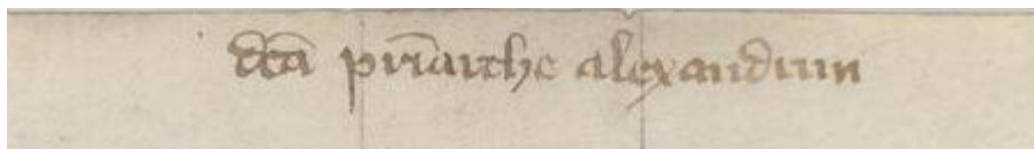 dcā prīarche alexandrini